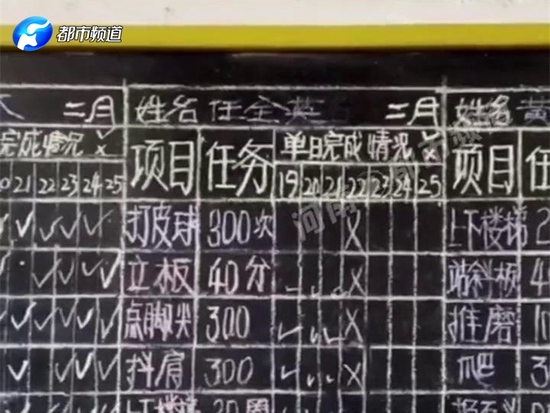 都市频道
二月 姓名 任全英 二月 姓名 黄
完成情况 项目 任务 单日完成情况 项目
21 22 23 24 25 19 20 21 22 23 24 25
打皮球 300次 上下楼梯 2
立板 40分 站斜板 4
点脚尖 300 推磨
抖肩 300 爬 3